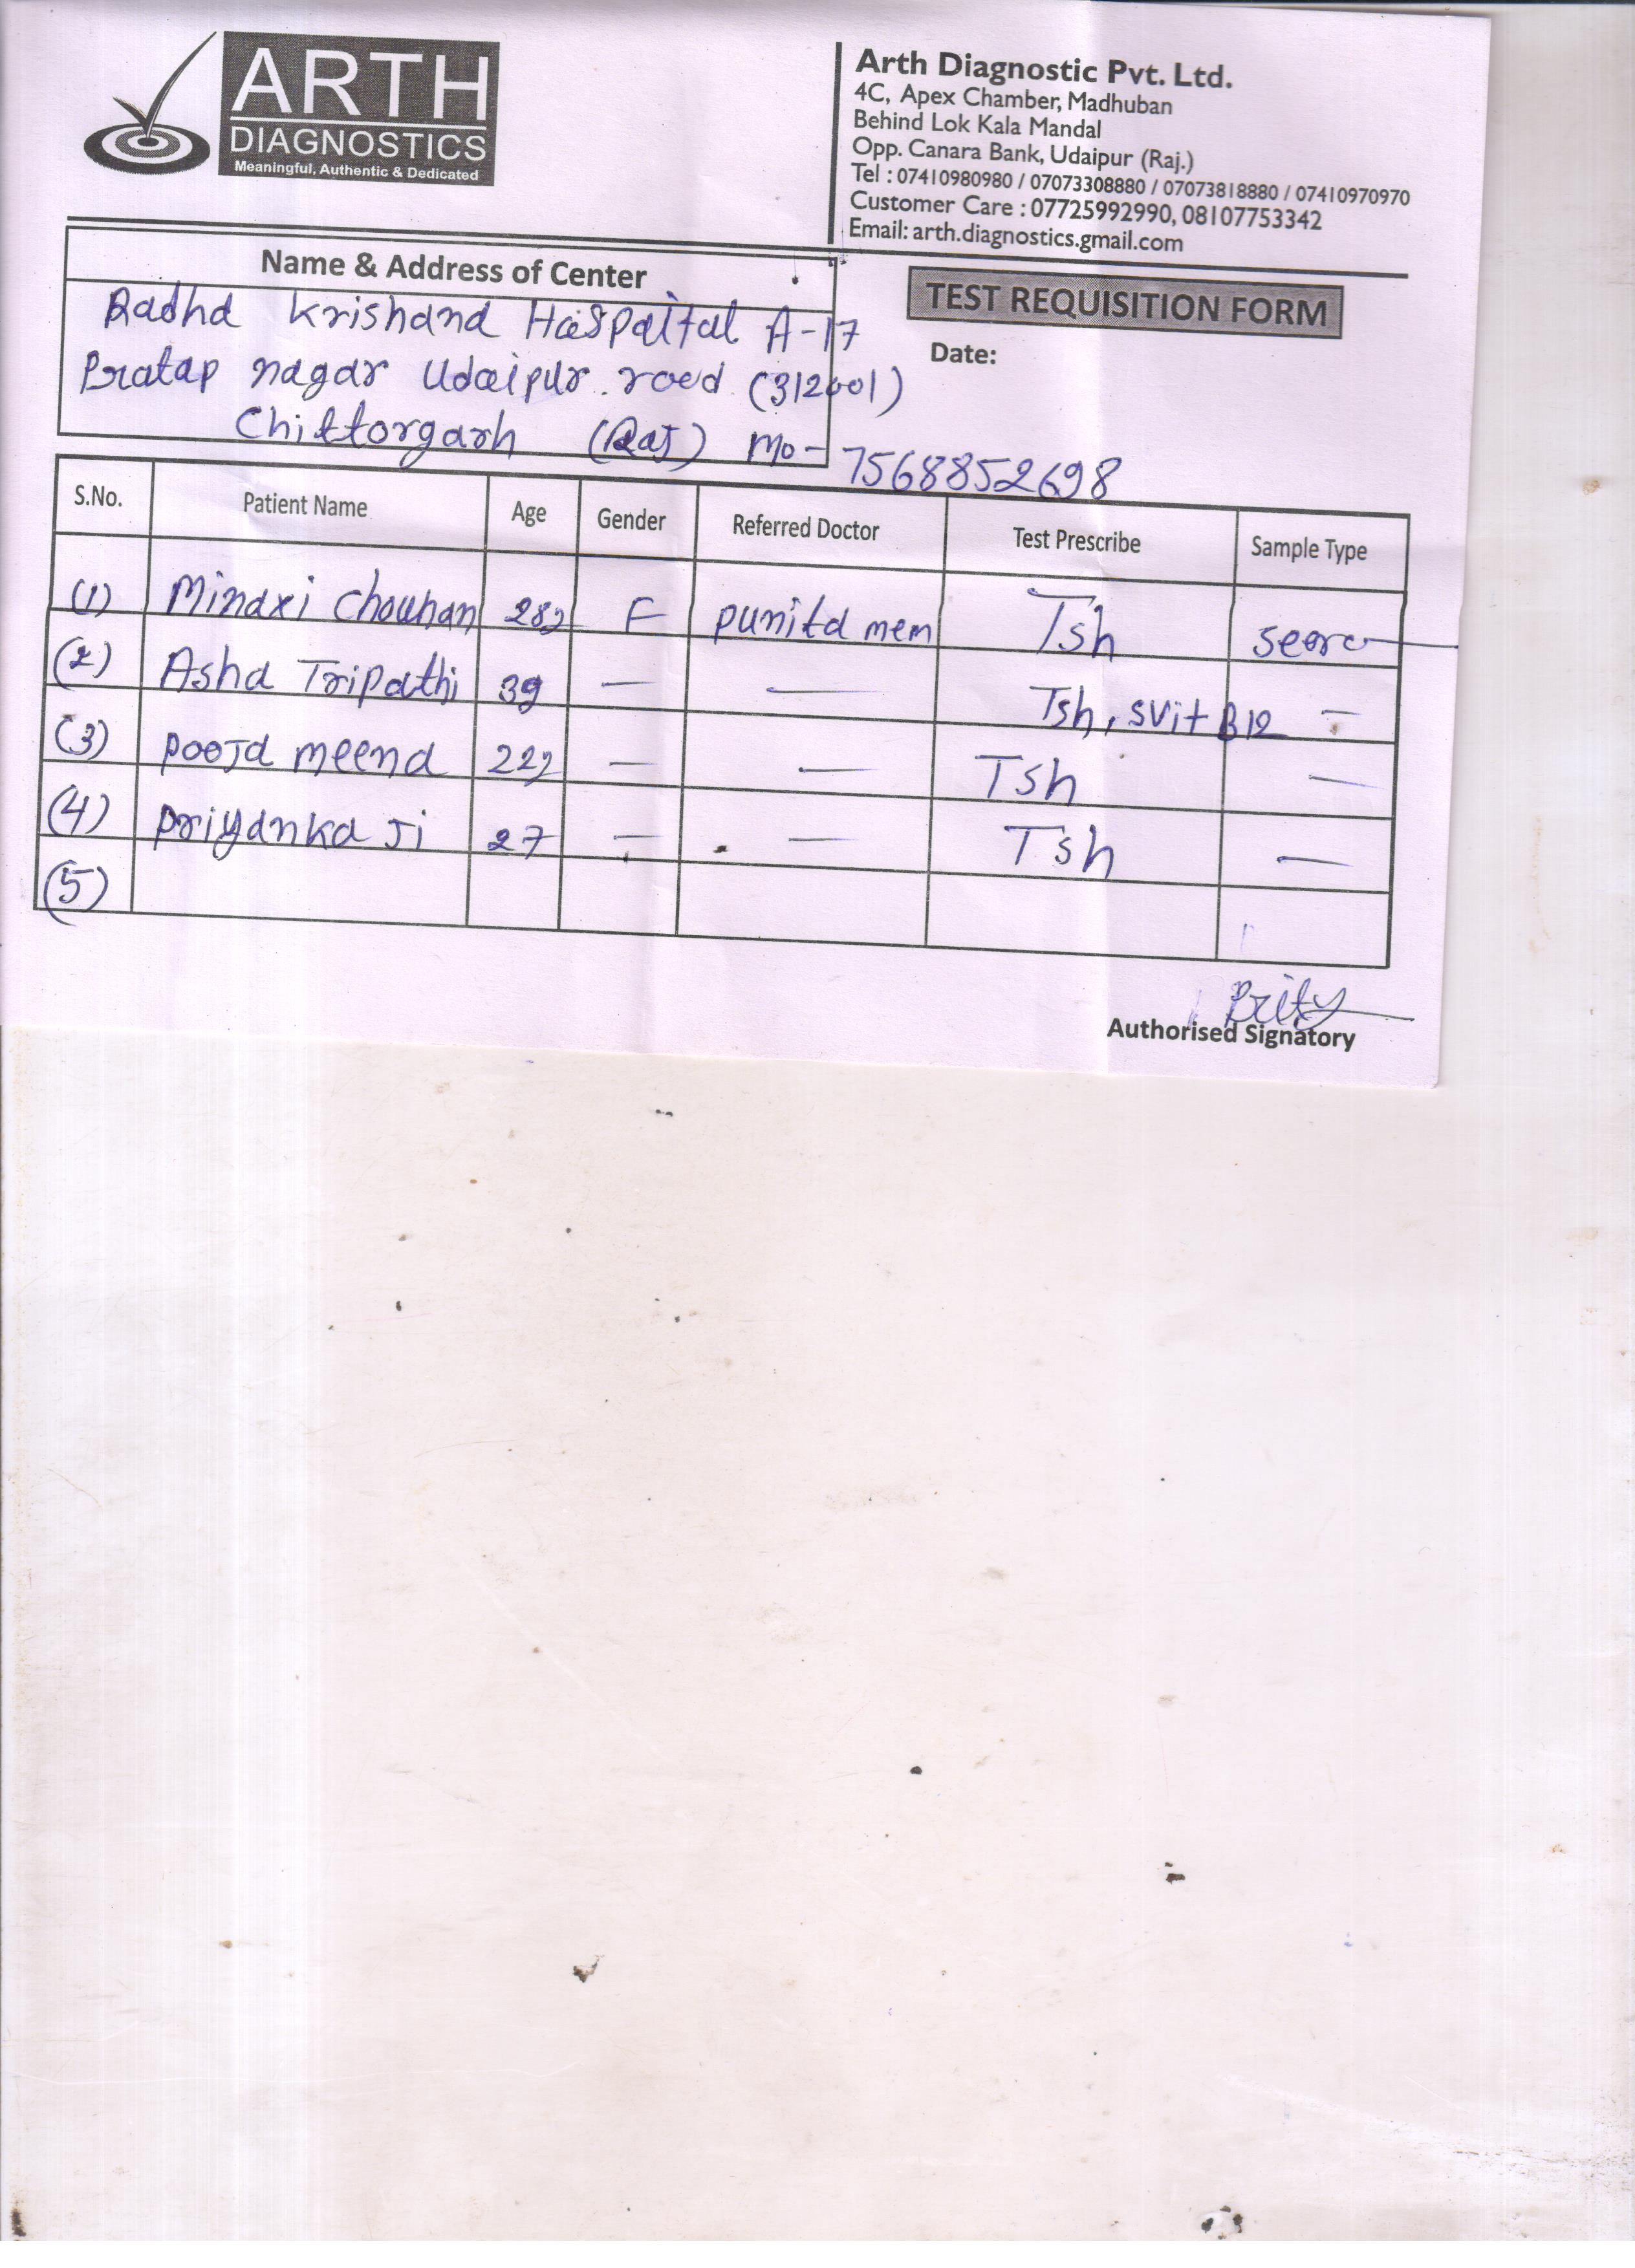 ARTH
DIAGNOSTICS
Meaningful, Authentic & Dedicated
Arth Diagnostic Pvt. Ltd.
4C, Apex Chamber, Madhuban
Behind Lok Kala Mandal
Opp. Canara Bank, Udaipur (Raj.)
Tel : 07410980980 / 07073308880 / 07073818880 / 07410970970
Customer Care : 07725992990, 08107753342
Email: arth.diagnostics.gmail.com
Name & Address of Center
TEST REQUISITION FORM
Date:
Radha Krishana Hospaital A-17
Pratap nagar Udaipur road (312001)
Chittorgarh (Raj) Mo - 7568852698
S.No. Patient Name Age Gender Referred Doctor Test Prescribe Sample Type
(1) Minaxi Chouhan 28y F punita mem Tsh
(2) Asha Tripathi 39 — — Tsh, SVit B12 —
(3) pooja meena 22y — — Tsh —
(4) priyanka Ji 27 — — Tsh —
(5)
Prity
Authorised Signatory